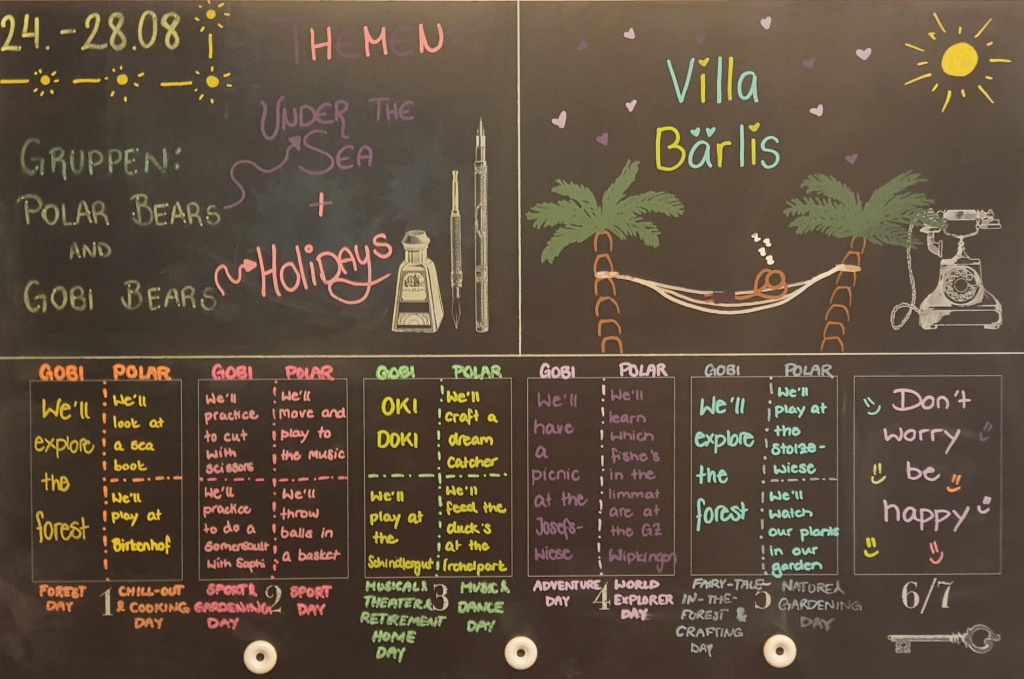 24.-28.08
THEMEN:
UNDER THE
SEA
+
HOLIDAYS
GRUPPEN:
POLAR BEARS
AND
GOBI BEARS
Villa
Bärlis
GOBI
We'll
explore
the
forest
FOREST
DAY
1
POLAR
We'll
look at
a sea
book
We'll
play at
Birkenhof
CHILL-OUT
& COOKING
DAY
GOBI
We'll
practice
to cut
with
scissors
We'll
practice
to do a
somersault
with Saphi
SPORT &
GARDENING
DAY
2
POLAR
We'll
move and
play to
the music
We'll
throw
balls in
a basket
SPORT
DAY
GOBI
OKI
DOKI
We'll
play at
the
Schindlergut
MUSICAL &
THEATER &
RETIREMENT
HOME
DAY
3
POLAR
We'll
craft a
dream
catcher
We'll
feed the
duck's
at the
Irchelpark
MUSIC &
DANCE
DAY
GOBI
We'll
have
a
picnic
at the
Josefs-
wiese
ADVENTURE
DAY
4
POLAR
We'll
learn
which
fishe's
in the
limmat
are at
the GZ
Wipkingen
WORLD
EXPLORER
DAY
GOBI
We'll
explore
the
forest
FAIRY-TALE-
IN-THE-
FOREST &
CRAFTING
DAY
5
POLAR
We'll
play at
the
Stolze-
wiese
We'll
watch
our plants
in our
garden
NATURE &
GARDENING
DAY
Don't
worry
be
happy
6/7